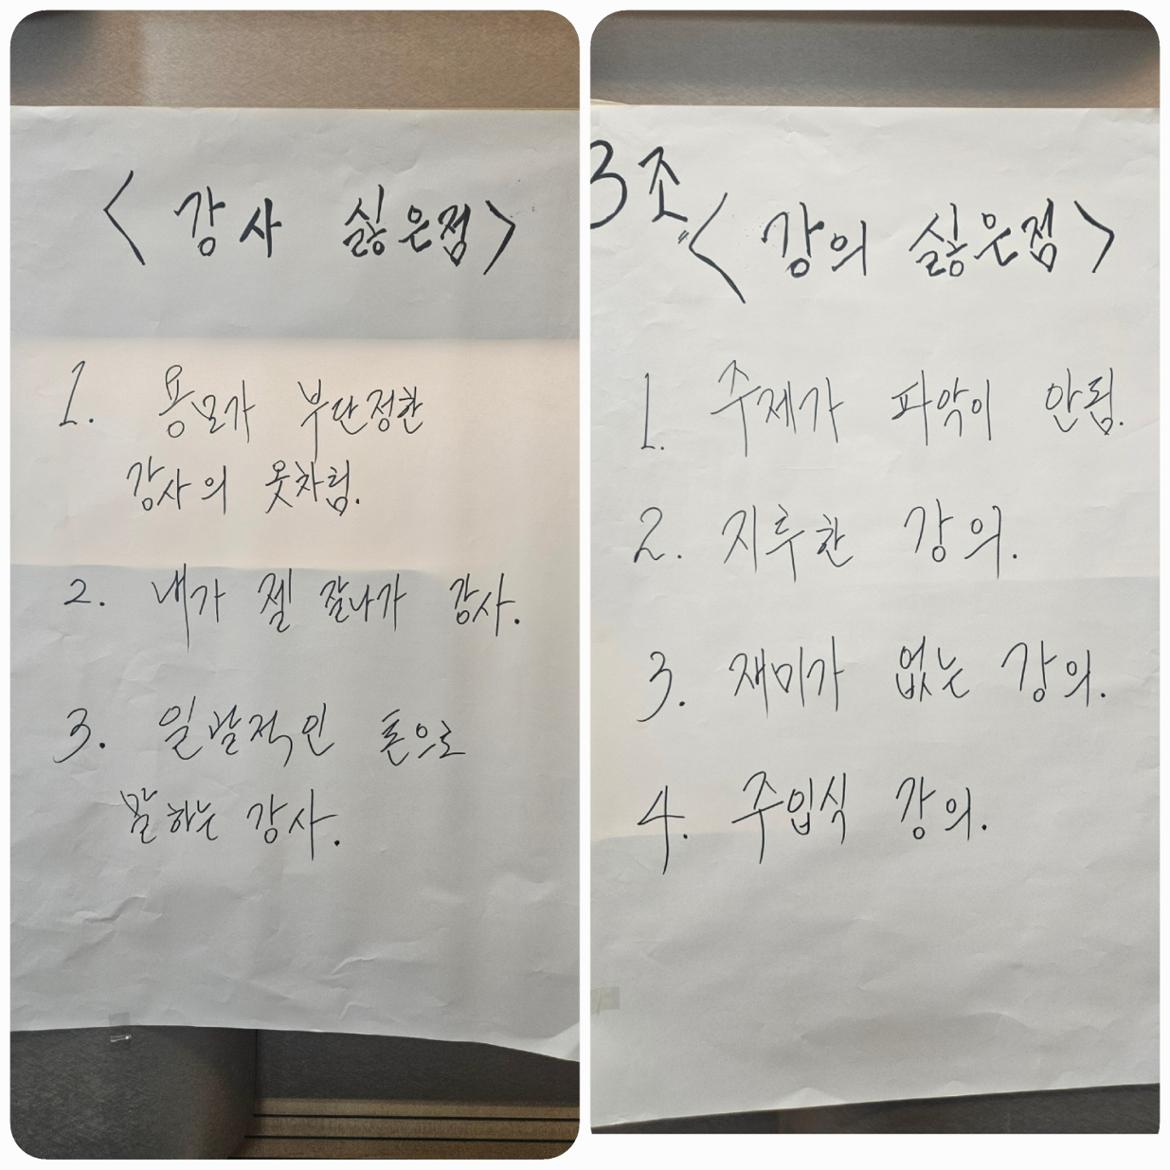 <강사 싫은점>
1. 용모가 부단정한
강사의 옷차림.
2. 내가 젤 잘나가 강사.
3. 일괄적인 톤으로
말하는 강사.
3조
<강의 싫은점>
1. 주제가 파악이 안됨.
2. 지루한 강의.
3. 재미가 없는 강의.
4. 주입식 강의.